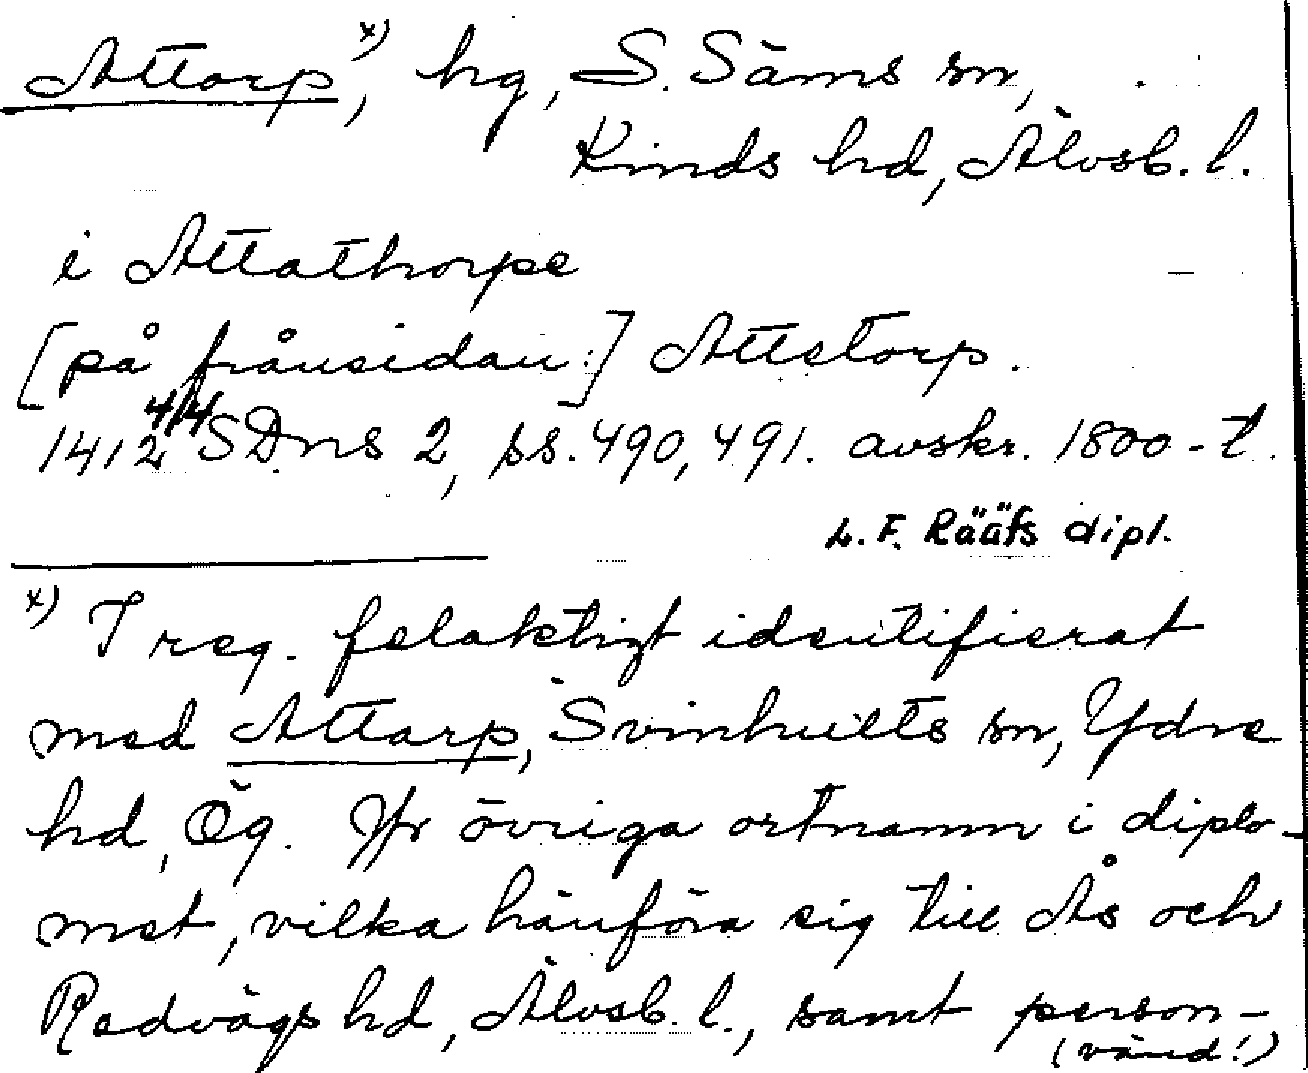 Attorp,ˣ⁾ hg, S. Säms sn,
Kinds hd, Älvsb. l.
i Attathorpe
[på frånsidan:] Attstorp.
1412 4/4 SDns 2, ss. 490, 491. avskr. 1800-t.
L. F. Rääfs dipl.
ˣ⁾ I reg. felaktigt identifierat
med Attarp, Svinhults sn, Ydre
hd, Ög. Jfr övriga ortnamn i diplo-
met, vilka hänföra sig till Ås och
Redvägs hd, Älvsb. l., samt person-
(vänd!)